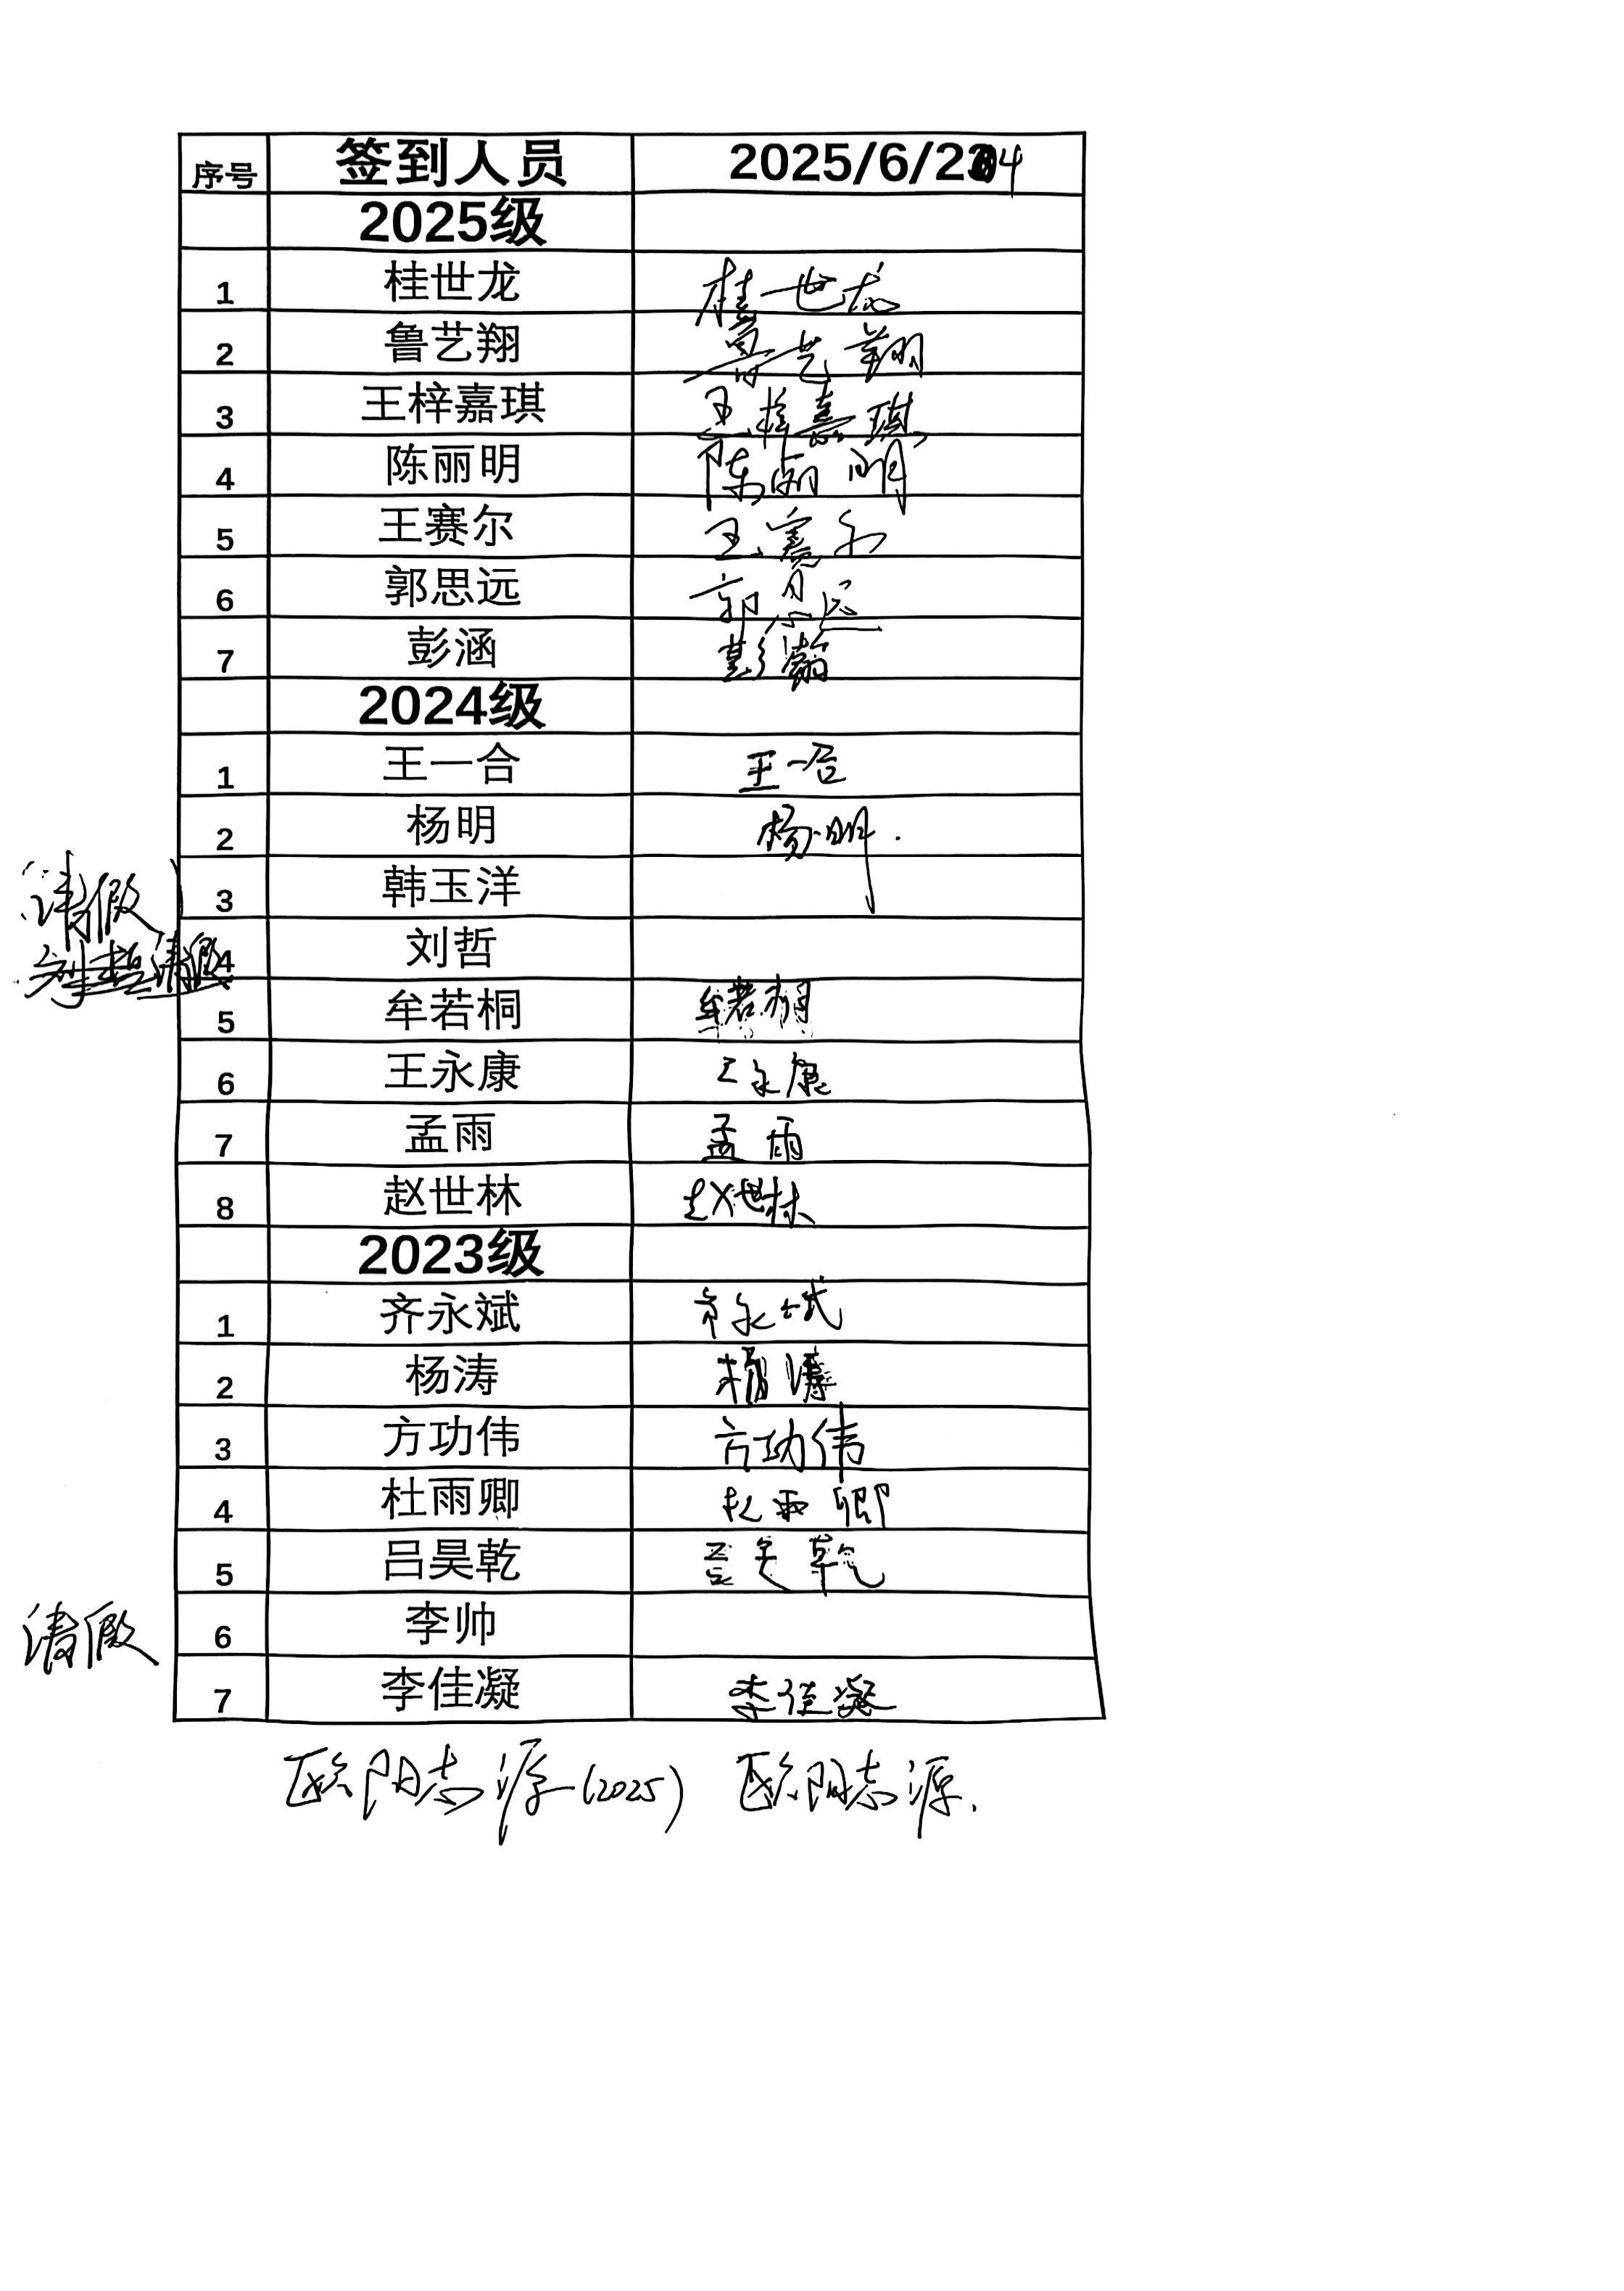 序号 签到人员 2025/6/24
2025级
1 桂世龙 桂世龙
2 鲁艺翔 鲁艺翔
3 王梓嘉琪 王梓嘉琪
4 陈丽明 陈丽明
5 王赛尔 王赛尔
6 郭思远 郭思远
7 彭涵 彭涵
2024级
1 王一合 王一合
2 杨明 杨明.
(请假) 3 韩玉洋
刘哲请假 4 刘哲
5 牟若桐 牟若桐
6 王永康 王永康
7 孟雨 孟雨
8 赵世林 赵世林
2023级
1 齐永斌 齐永斌
2 杨涛 杨涛
3 方功伟 方功伟
4 杜雨卿 杜雨卿
5 吕昊乾 吕昊乾
请假 6 李帅
7 李佳凝 李佳凝
欧阳志源(2025) 欧阳志源.